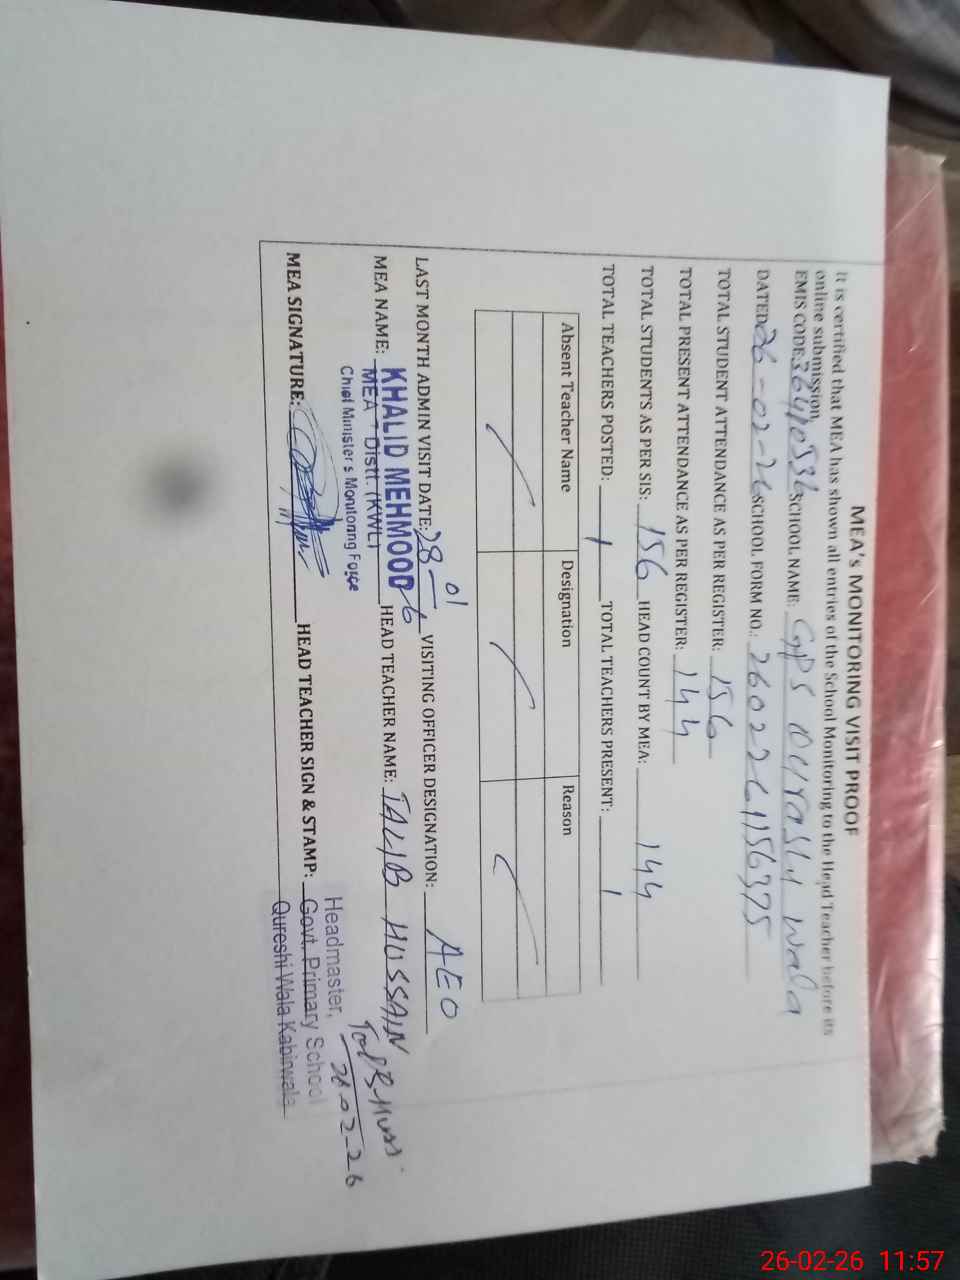 MEA's MONITORING VISIT PROOF
It is certified that MEA has shown all entries of the School Monitoring to the Head Teacher before its
online submission.
EMIS CODE: SCHOOL NAME: GPS Qurashi Wala
DATED 26-02-26 SCHOOL FORM NO.: 26022261156375
TOTAL STUDENT ATTENDANCE AS PER REGISTER: 156
TOTAL PRESENT ATTENDANCE AS PER REGISTER: 144
TOTAL STUDENTS AS PER SIS: 156 HEAD COUNT BY MEA: 144
TOTAL TEACHERS POSTED: 1 TOTAL TEACHERS PRESENT: 1
Absent Teacher Name Designation Reason
LAST MONTH ADMIN VISIT DATE: 28-01 VISITING OFFICER DESIGNATION: AEO
MEA NAME: KHALID MEHMOOD HEAD TEACHER NAME: TALIB HUSSAIN
MEA - Distt. (KWL)
Chief Minister s Monitoring Force
MEA SIGNATURE: HEAD TEACHER SIGN & STAMP:
Headmaster,
Govt. Primary School
Qureshi Wala Kabirwala
26-02-26
26-02-26 11:57